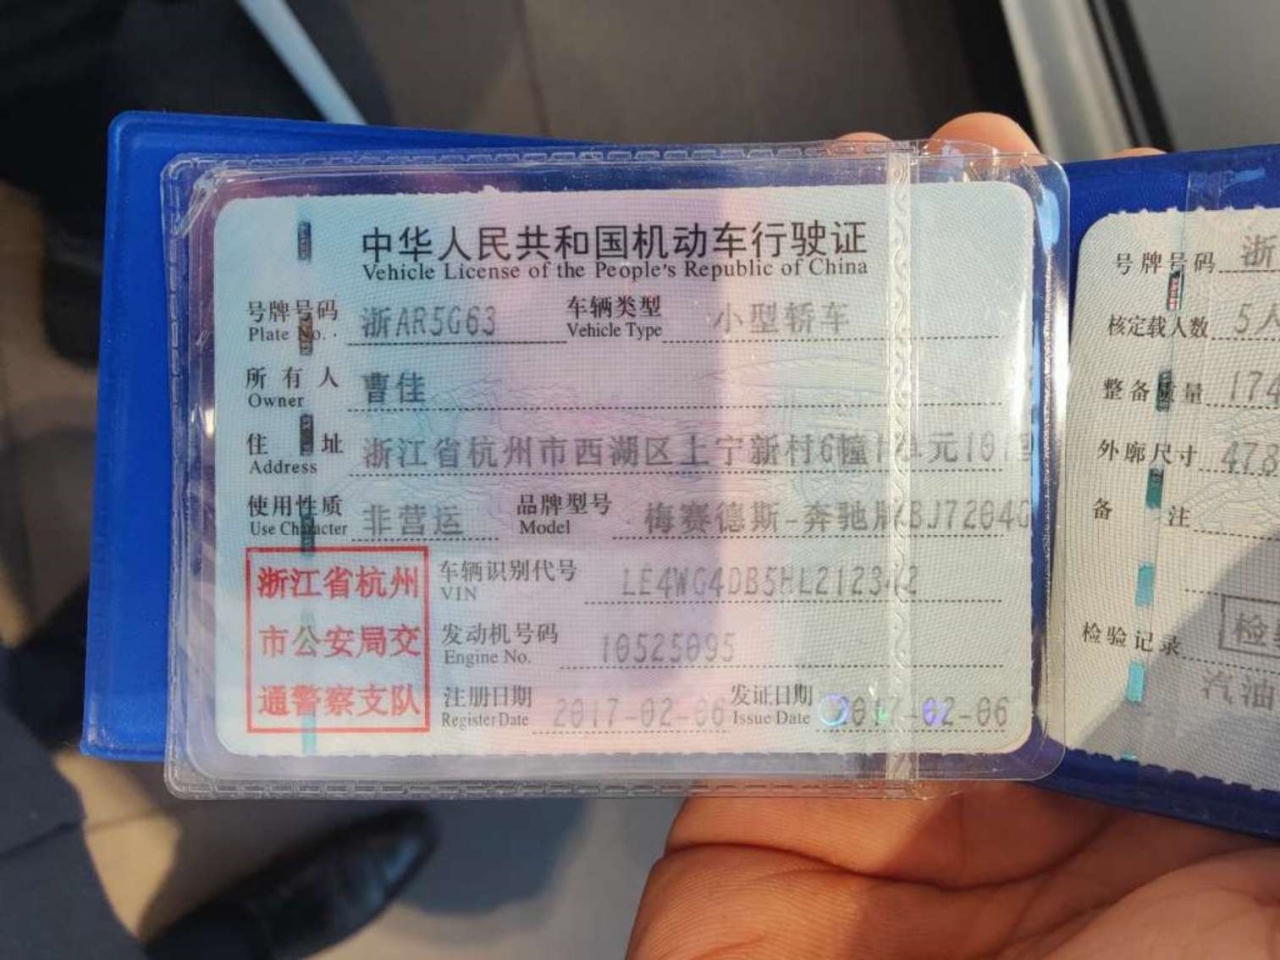 中华人民共和国机动车行驶证
Vehicle License of the People's Republic of China
号牌号码 浙AR5G63 车辆类型 小型轿车
Plate No. Vehicle Type
所有人 曹佳
Owner
住址 浙江省杭州市西湖区上宁新村6幢1单元101室
Address
使用性质 非营运 品牌型号 梅赛德斯-奔驰牌BJ7204G
Use Character Model
车辆识别代号 LE4WG4DB5HL212342
VIN
发动机号码 10525095
Engine No.
注册日期 2017-02-06 发证日期 2017-02-06
Register Date Issue Date
浙江省杭州
市公安局交
通警察支队
号牌号码 浙
核定载人数 5人
整备质量 174
外廓尺寸 478
备注
检验记录 检
汽油